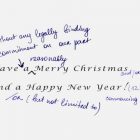 without any legally binding
commitment on our part
reasonably
Have a ^ Merry Christmas
and/or
And a Happy New Year!
(but not limited to)